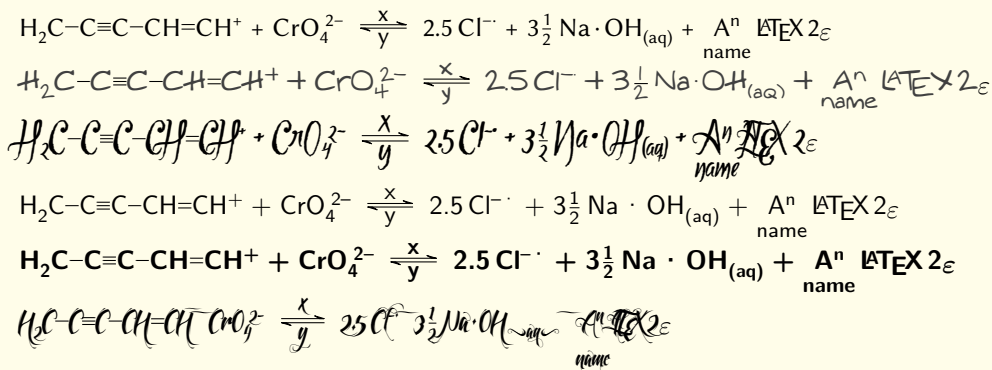 H₂C−C≡C−CH=CH⁺ + CrO₄²⁻ x ⇌ y 2.5 Cl⁻˙ + 3½ Na·OH(aq) + Aⁿ name LATEX 2ε
H₂C−C≡C−CH=CH⁺ + CrO₄²⁻ x ⇌ y 2.5 Cl⁻˙ + 3½ Na·OH(aq) + Aⁿ name LATEX 2ε
H₂C−C≡C−CH=CH⁺ + CrO₄²⁻ x ⇌ y 2.5 Cl⁻˙ + 3½ Na·OH(aq) + Aⁿ name LATEX 2ε
H₂C−C≡C−CH=CH⁺ + CrO₄²⁻ x ⇌ y 2.5 Cl⁻˙ + 3½ Na · OH(aq) + Aⁿ name LATEX 2ε
H₂C−C≡C−CH=CH⁺ + CrO₄²⁻ x ⇌ y 2.5 Cl⁻˙ + 3½ Na · OH(aq) + Aⁿ name LATEX 2ε
H₂C−C≡C−CH=CH CrO₄²⁻ x ⇌ y 2.5 Cl⁻ 3½ Na·OH aq Aⁿ name LATEX 2ε